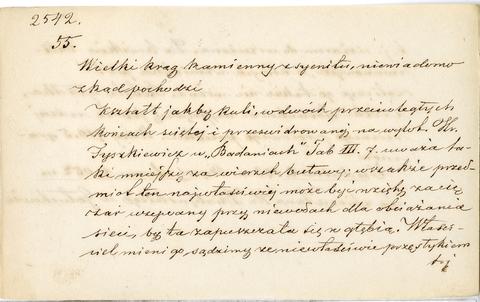 2542.
55.
Wielki krąg kamienny z syenitu, niewiadomo
zkąd pochodzi
Kształt jakby kuli, w dwóch przeciwległych
końcach ściętej i przeswidrowanej na wylot. Hr.
Tyszkiewicz w „Badaniach" Tab III. 7. uważa ta-
ki mniejszy za wierzch buławy; wszakże przed-
miot ten najwłaściwiej może być wzięty za cię-
żar używany przy niewodach dla obciążania
sieci, by ta zapuszczała się w głębią. Właści-
ciel mieni go, sądzimy że niewłaściwie przęslykiem